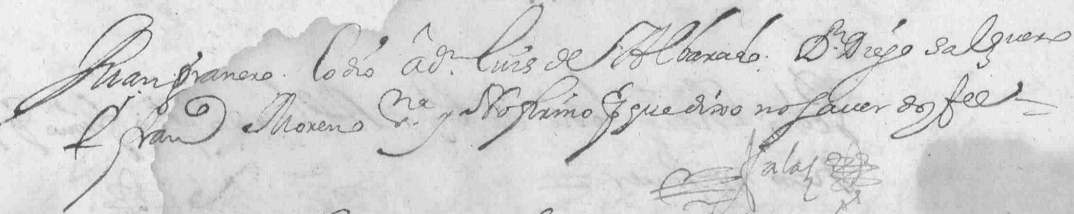 Juan franero. Lo dio â dn. Luis de Albarado. Dn. Diego salguero
fran Moreno y No firmo qe dixo no saver doy fee
salas